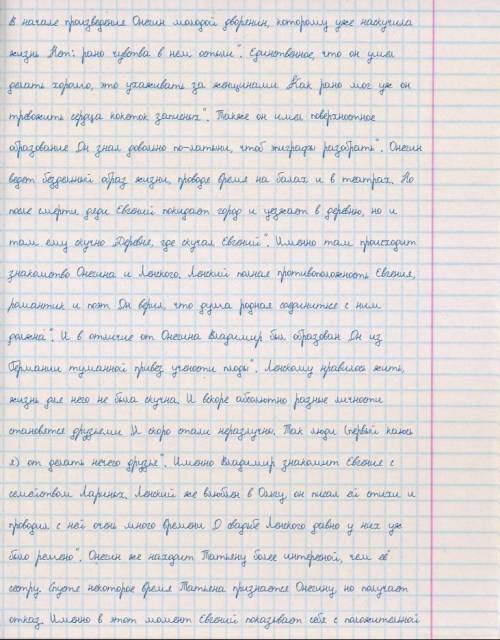 В начале произведения Онегин молодой дворянин, которому уже наскучила
жизнь „Нет: рано чувства в нем остыли". Единственное, что он умел
делать хорошо, это ухаживать за женщинами „Как рано мог уж он
тревожить сердца кокеток записных". Также он имел поверхностное
образование „Он знал довольно по-латыни, чтоб эпиграфы разобрать". Онегин
ведет бездельный образ жизни, проводя время на балах и в театрах. Но
после смерти дяди Евгений покидает город и уезжает в деревню, но и
там ему скучно „Деревня, где скучал Евгений". Именно там происходит
знакомство Онегина и Ленского. Ленский полная противоположность Евгения,
романтик и поэт „Он верил, что душа родная соединиться с ним
должна". И в отличие от Онегина Владимир был образован „Он из
Германии туманной привез учености плоды". Ленскому нравилось жить,
жизнь для него не была скучна. И вскоре абсолютно разные личности
становятся друзьями „И скоро стали неразлучны. Так люди (первый каюсь
я) от делать нечего друзья". Именно Владимир знакомит Евгения с
семейством Лариных. Ленский же влюблен в Ольгу, он писал ей стихи и
проводил с ней очень много времени „О свадьбе Ленского давно у них уж
было решено". Онегин же находит Татьяну более интересной, чем её
сестру. Спустя некоторое время Татьяна признается Онегину, но получает
отказ. Именно в этот момент Евгений показывает себя с положительной